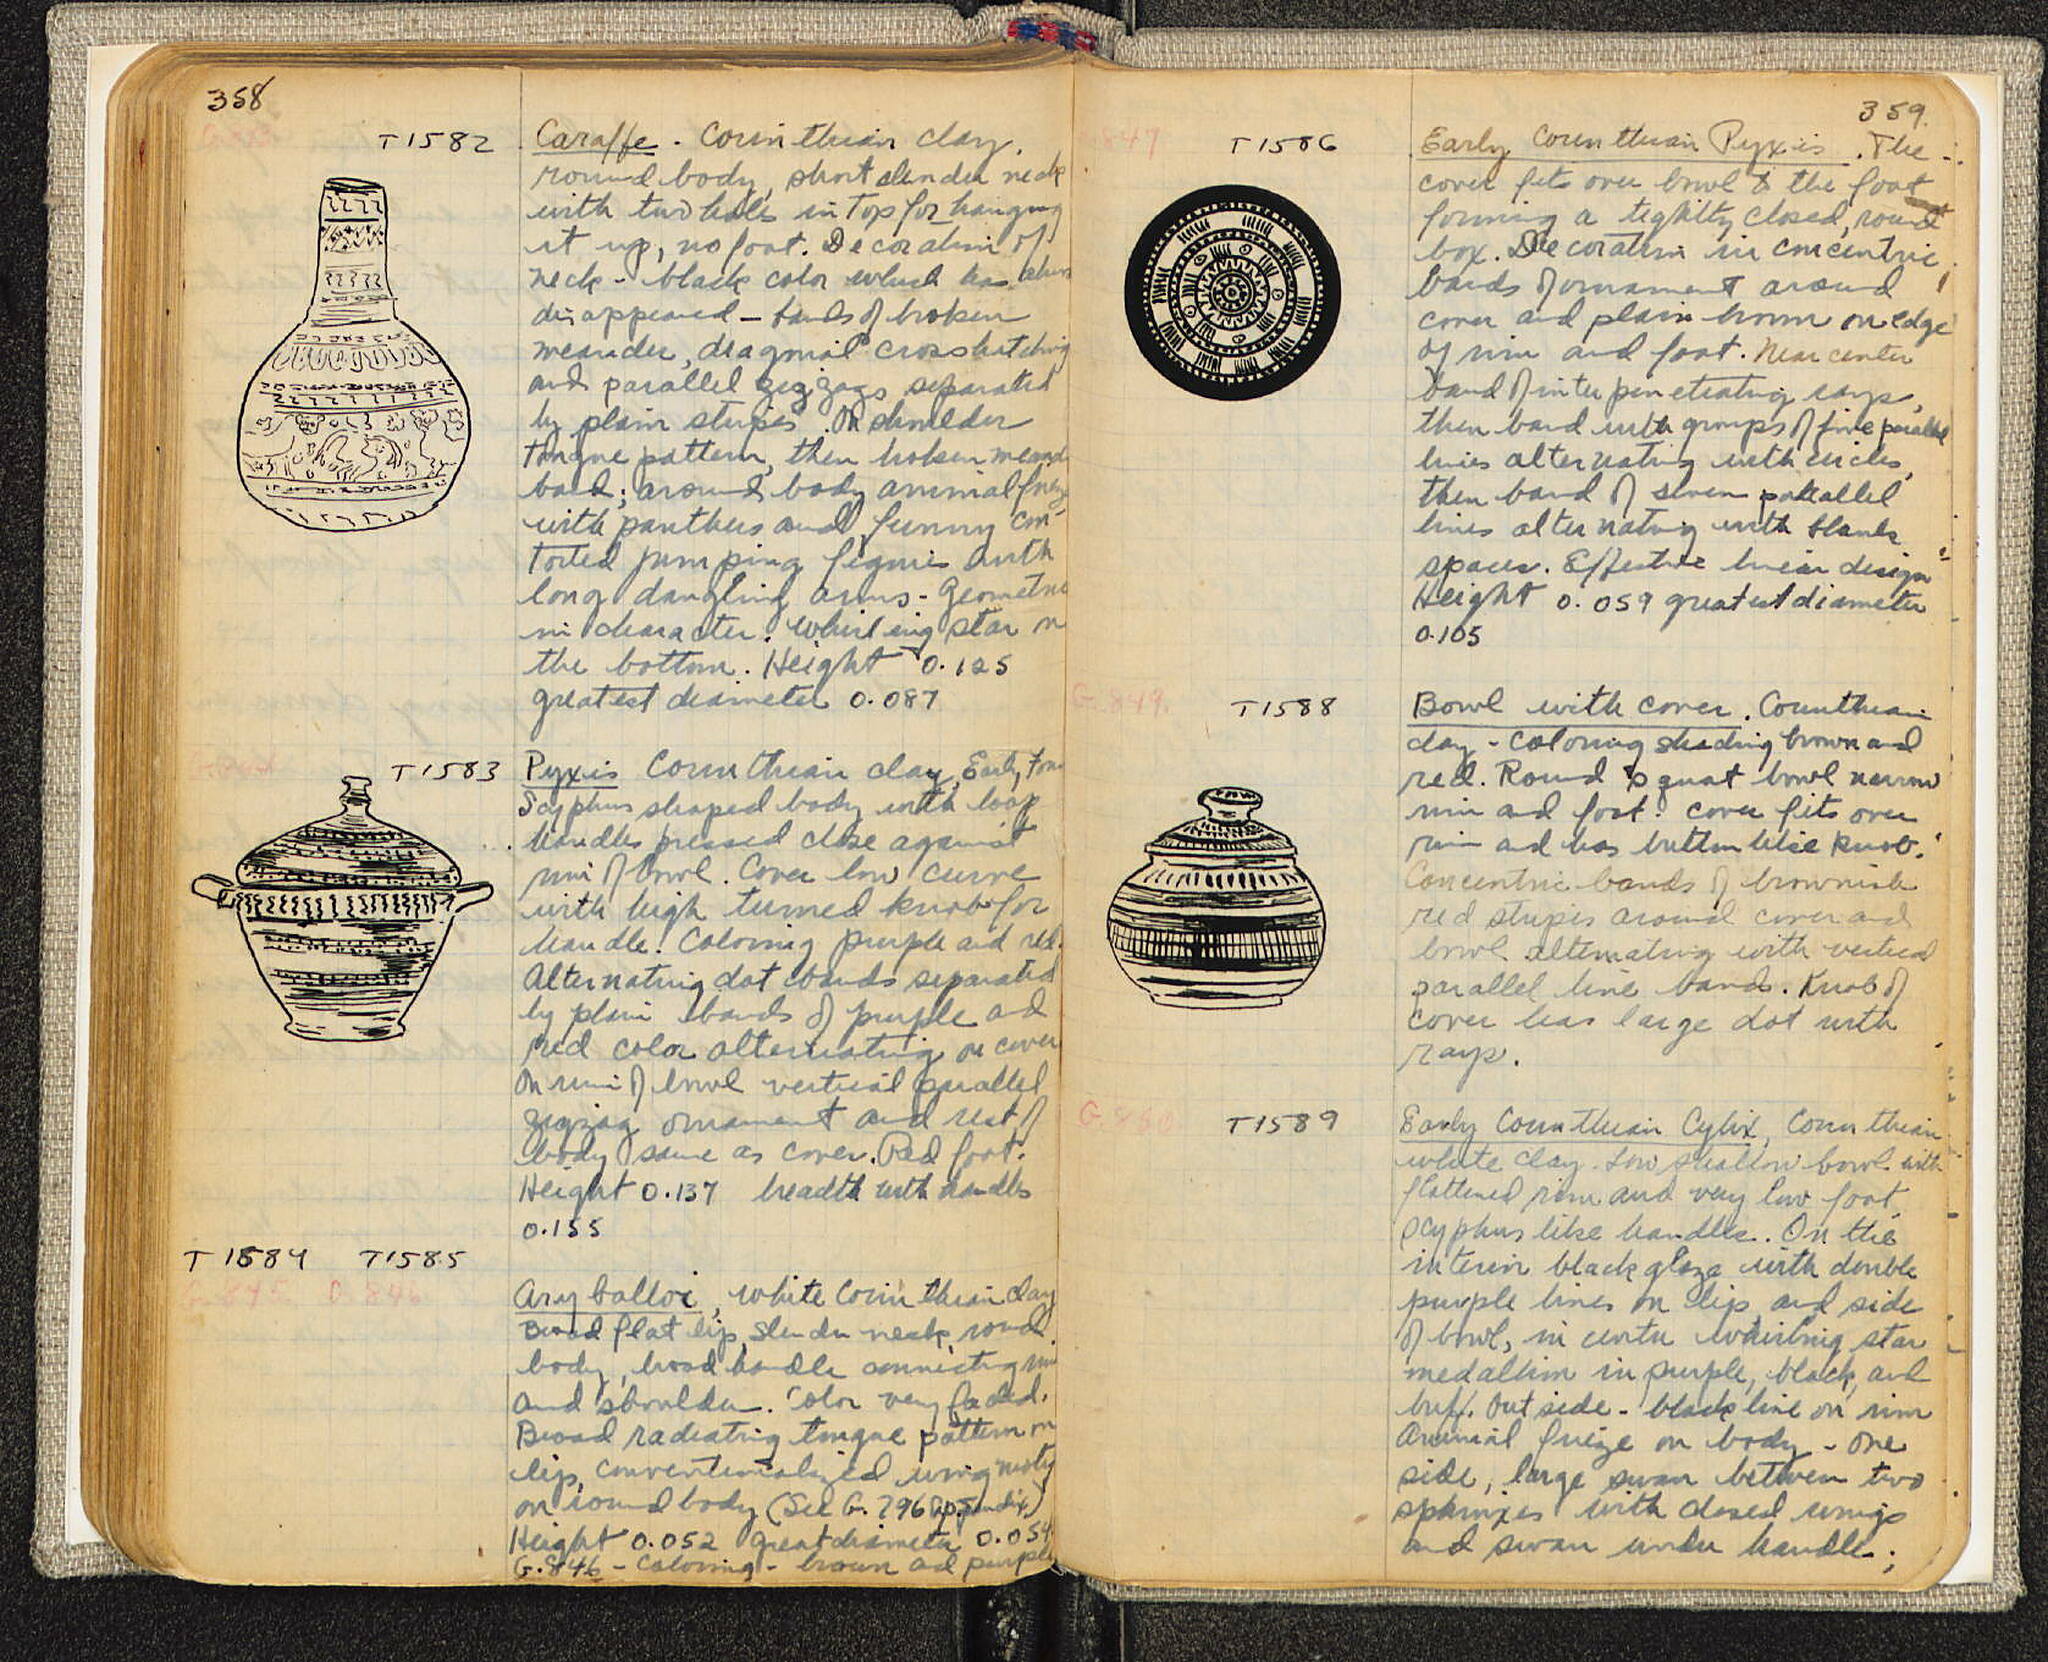 358
T1582
Caraffe. Corinthian clay.
round body, short slender neck
with two holes in top for hanging
it up, no foot. Decoration of
neck - black color which has
disappeared - bands of broken
meander, diagonal crosshatching
and parallel zigzags separated
by plain stripes. On shoulder
tongue pattern, then broken meand
band; around body animal frieze
with panthers and funny con-
torted jumping figures with
long dangling arms - Geometric
in character. Whirling star on
the bottom. Height 0.125
greatest diameter 0.087
T1583
Pyxis Corinthian clay, Early, Form
Scyphus shaped body with loop
handles pressed close against
rim of bowl. Cover low curve
with high turned knob for
handle. Coloring purple and red.
Alternating dot bands separated
by plain bands of purple and
red color alternating on cover
On rim of bowl vertical parallel
zigzag ornament and rest of
body same as cover. Red foot.
Height 0.137 breadth with handles
0.155
T 1584 T1585
G.845. G.846
Aryballoi, white Corinthian clay
Broad flat lip, slender neck, round
body, broad handle connecting rim
and shoulder. Color very faded.
Broad radiating tongue pattern on
lip, conventionalized wing motif
on round body (See G. 796 Appendix)
Height 0.052 great diameter 0.054
G.846 - Coloring - brown and purple
359.
847
T1586
Early Corinthian Pyxis. The
cover fits over bowl & the foot
forming a tightly closed, round
box. Decoration in concentric
bands of ornament around
cover and plain brown on edge
of rim and foot. Near center
band of interpenetrating rays,
then band with groups of five parallel
lines alternating with circles,
then band of seven parallel
lines alternating with blank
spaces. Effective linear design
Height 0.059 greatest diameter
0.105
G.849.
T1588
Bowl with cover. Corinthian
clay - Coloring shading brown and
red. Round squat bowl narrow
rim and foot. Cover fits over
rim and has button like knob.
Concentric bands of brownish
red stripes around cover and
bowl alternating with vertical
parallel line bands. Knob of
cover has large dot with
rays.
G.850
T1589
Early Corinthian Cylix, Corinthian
white clay. Low shallow bowl with
flattened rim and very low foot.
Scyphus like handles. On the
interior black glaze with double
purple lines on lip and side
of bowl, in center whirling star
medallion in purple, black, and
buff. Outside - black line on rim
Animal frieze on body - One
side, large swan between two
sphinxes with closed wings
and swan under handle;